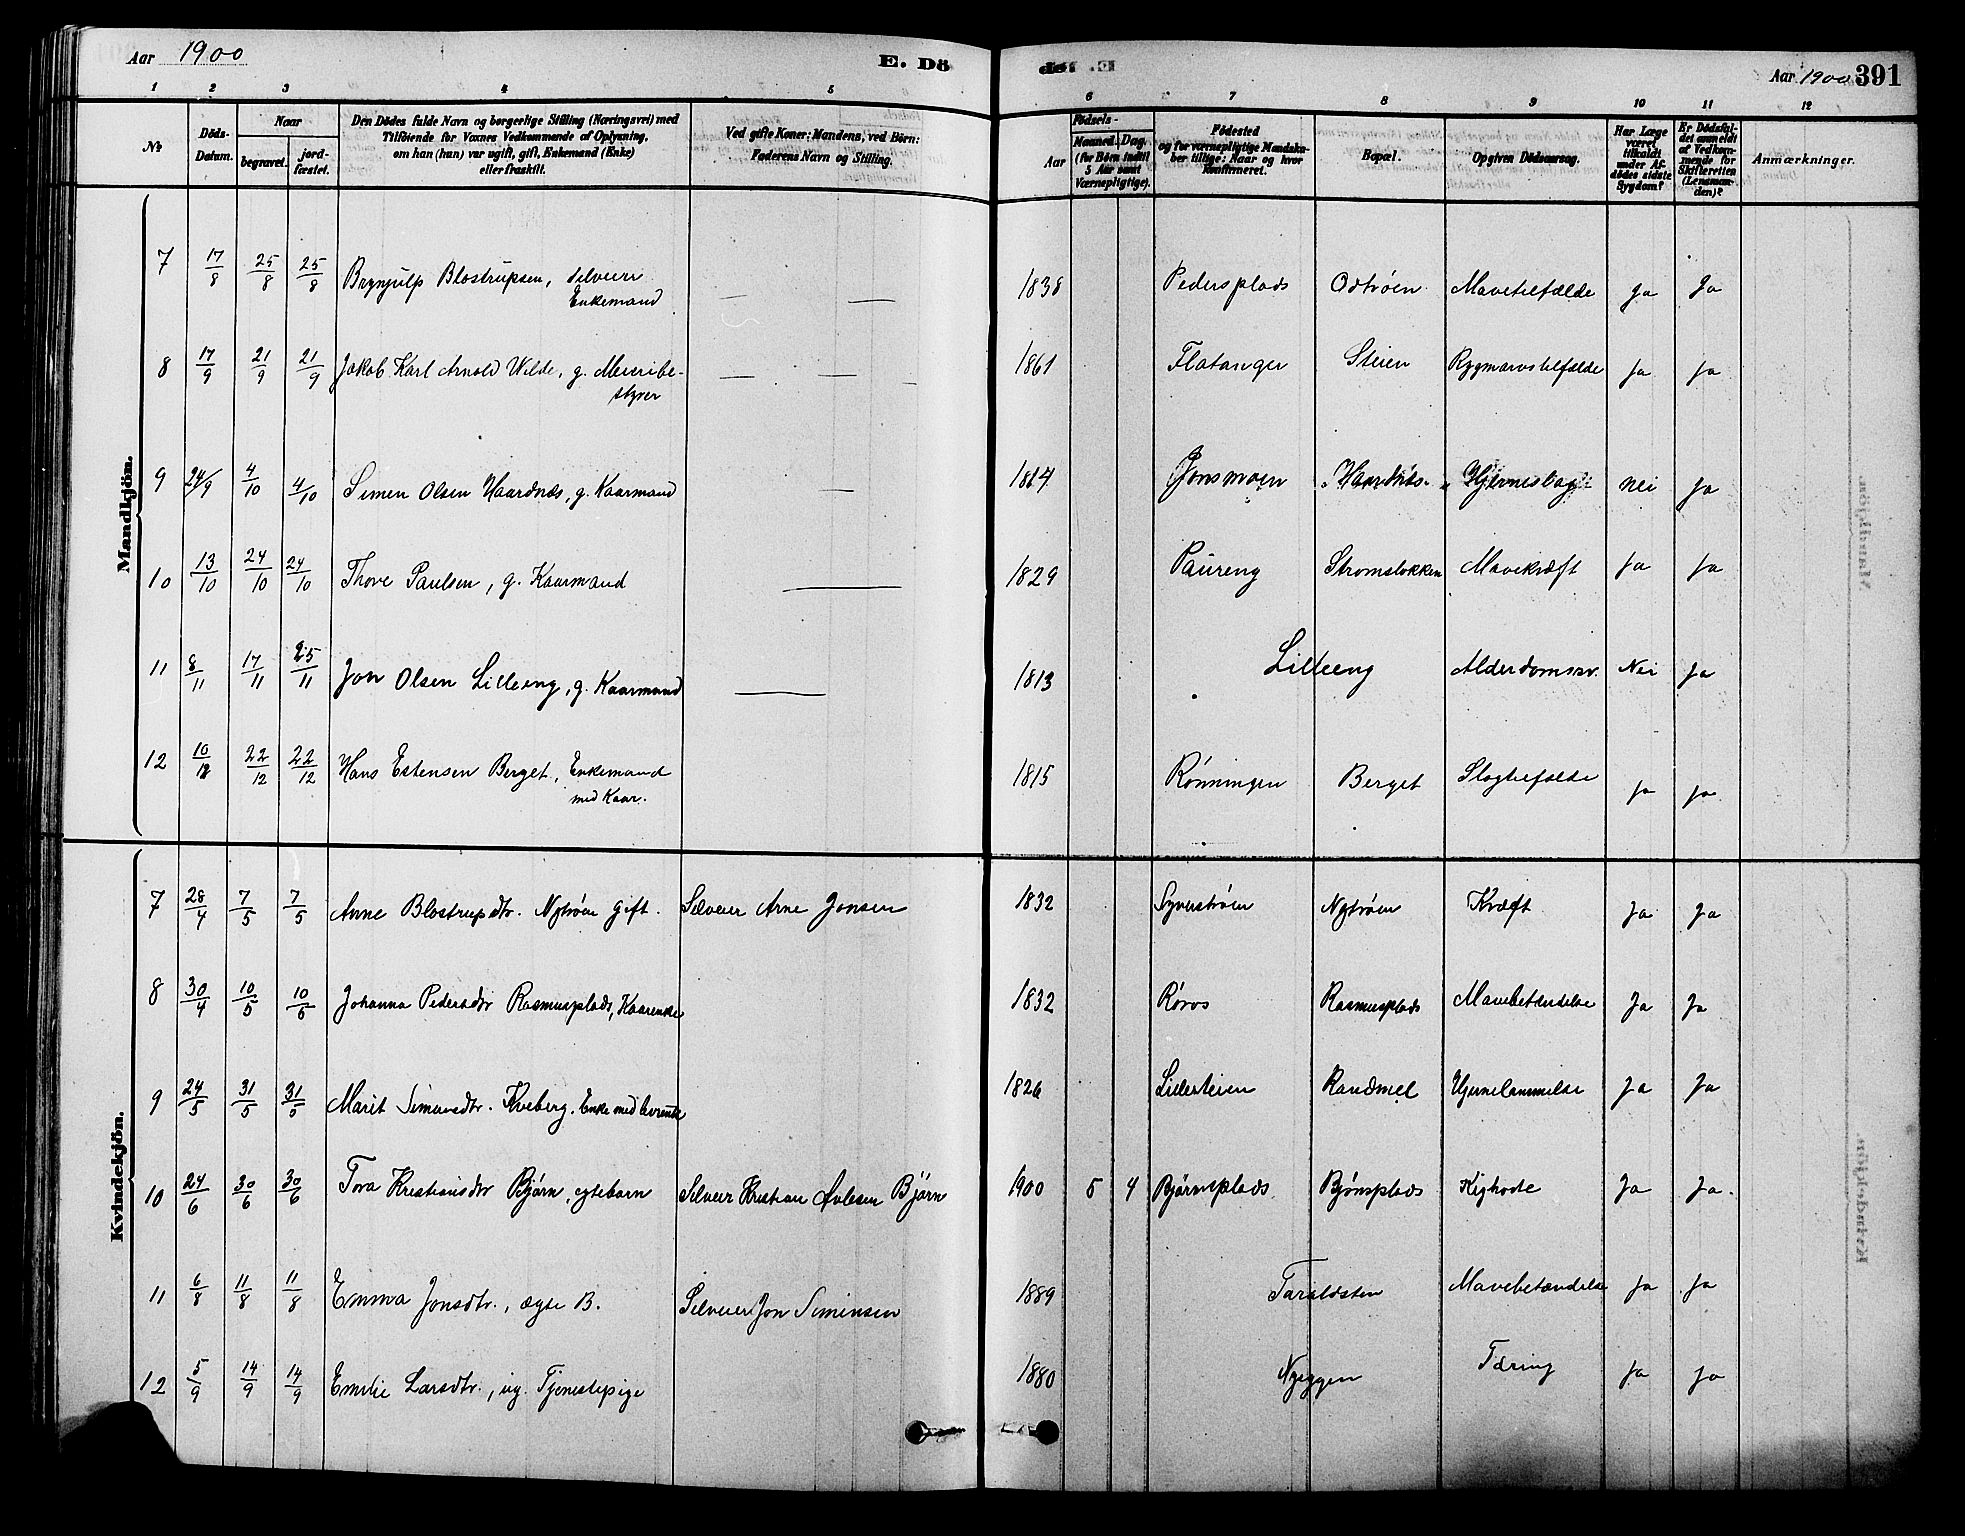 Aar 1900
E. Dö
Aar 1900 391
1 2 3 4 5 6 7 8 9 10 11 12
No
Döds-Datum.
Naar
begravet.
jordfæstet.
Den Dödes fulde Navn og borgerlige Stilling (Næringsvei) med
Tilföiende for Voxnes Vedkommende af Oplysning,
om han (hun) var ugift, gift, Enkemand (Enke)
eller fraskilt.
Ved gifte Koner: Mandens, ved Börn:
Faderens Navn og Stilling.
Födsels-
Aar
Maaned. Dag.
(for Börn indtil
5 Aar samt
Værnepligtige).
Födested
og for værnepligtige Mandska-
ber tillige: Naar og hvor
konfirmeret.
Bopæl.
Opgiven Dödsaarsag.
Har Læge
været
tilkaldt
under Af-
dödes sidste
Sygdom?
Er Dödsfal-
det anmeldt
af Vedkom-
mende for
Skifteretten
(Lensman-
den)?
Anmærkninger.
Mandkjön.
7 17/8 25/8 25/8 Brynjulf Blostrupsen, selveier 1838 Pedersplads Odtrøen Mavetilfælde Ja Ja
Enkemand
8 17/9 21/9 21/9 Jakob Karl Arnold Wilde, g. Meieribe- 1861 Flatanger Steien Rygmarvstilfælde Ja Ja
styrer
9 24/9 4/10 4/10 Simen Olsen Haardnæs, g. Kaarmand Jonsmoen nei Ja
10 13/10 24/10 24/10 Thore Paulsen, g. Kaarmand 1829 Paureng Strømsløkken Mavekræft Ja Ja
11 8/11 17/11 25/11 Jon Olsen Lilleeng, g. Kaarmand 1813 Lilleeng Alderdomssv. Nei Ja
12 10/12 22/12 22/12 Hans Estensen Berget, Enkemand 1815 Rønningen Berget Slagtilfælde Ja Ja
med Kaar.
Kvindekjön.
7 28/4 7/5 7/5 Anne Blostrupsdtr. Nytrøen gift. Selveier Arne Jonsen 1832 Syverstrøen Nytrøen Kræft Ja Ja
8 30/4 10/5 10/5 Johanna Pedersdtr Rasmusplads, Kaarenke 1832 Røros Rasmusplads Mavebetændelse Ja Ja
9 24/5 31/5 31/5 Marit Simensdtr. Kveberg. Enke med 1826 Lillesteien Randmel Hjernelammelse Ja Ja
10 24/6 30/6 30/6 Tora Kristiansdtr Bjørn, ægtebarn Selveier Kristian Bjørn 1900 5 4 Bjørnsplads Bjønsplads Kighoste Ja Ja.
11 6/8 11/8 11/8 Emma Jonsdtr., ægte B. Selveier Jon Simensen 1889 Taraldsten Mavebetændelse Ja Ja
12 5/9 14/9 14/9 Emilie Larsdtr., ug. Tjenestepige 1880 Nyeggen Tæring Ja Ja